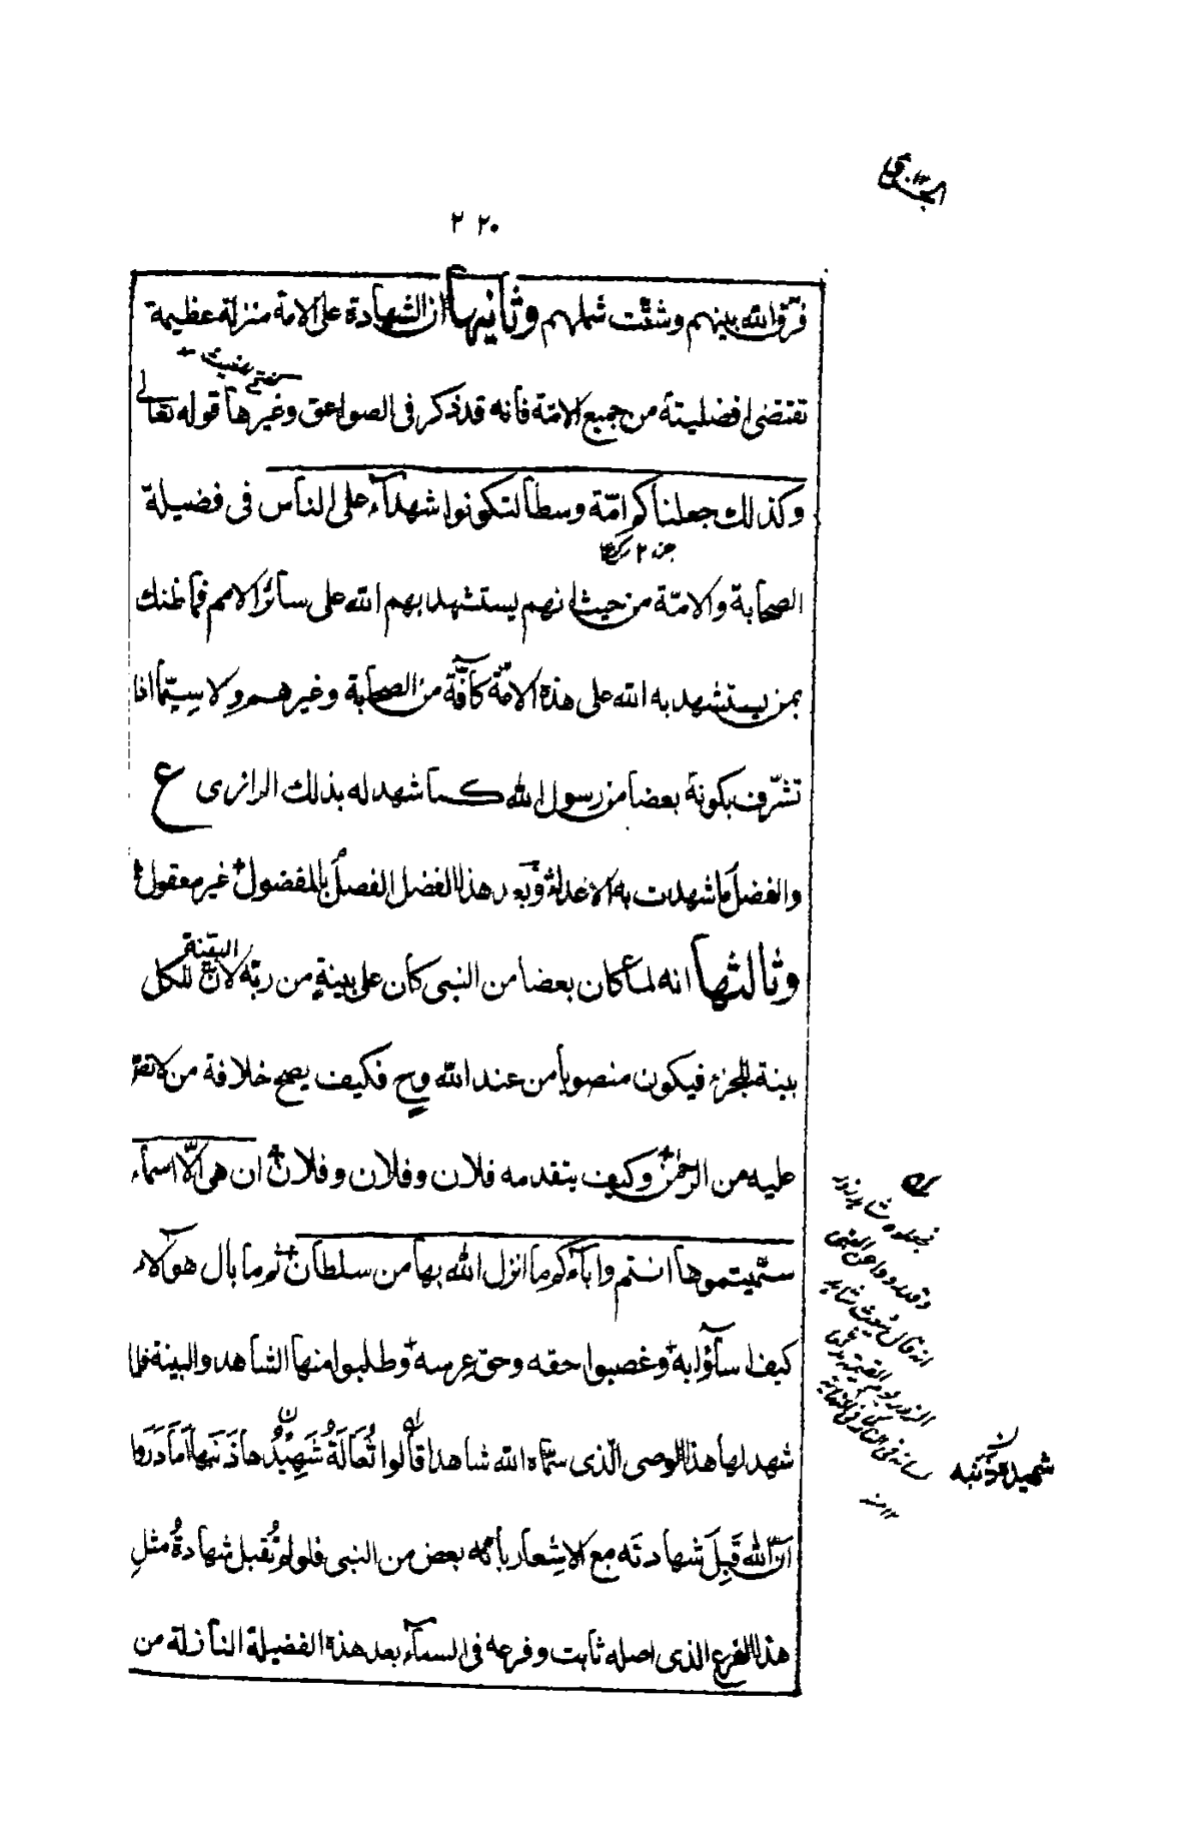 ٢٢٠
فرّق الله بينهم وشتّت شملهم وثانيها ان الشهادة على الامة منزلة عظيمة
تقتضى افضليته من جميع الامّة فانه قد ذكر فى الصواعق وغيرها قوله تعالى
وكذلك جعلناكم امّة وسطا لتكونوا شهدآء على الناس فى فضيلة
جزء ٢
الصحابة والامّة من حيث انهم يستشهد بهم الله على سائر الامم فما ظنك
بمن يستشهد به الله على هذه الامّة كآفّة من الصحابة وغيرهم ولا سِيّما اذا
تشرّف بكونه بعضا من رسول الله كما شهد له بذلك الرازى ع
والفضل ما شهدت به الاعداء وبعد هذا الفضل الفصل بالمفضول غير معقول
وثالثها انه لما كان بعضا من النبى كان على بينةٍ من ربّه لان البيّنة للكل
بينة للجزء فيكون منصوبا من عند الله وح فكيف يصح خلافة من لا نصّ
عليه من الرحمٰن وكيف يتقدمه فلان وفلان وفلان ان هى الّا اسماء
سمّيتموها انتم وابآءكم ما انزل الله بها من سلطان ثم ما بال هؤلاء
كيف اسآؤا به وغصبوا حقه وحق عِرسه وطلبوا منها الشاهد والبينة فلما
شهد لها هذا الوصى الّذى سمّاه الله شاهدا قالوا ثُعَالَةُ شَهِيْدُهَا ذَنَبُهَا اَمَا دَرَوا
انّ الله قَبِلَ شهادتَه مع الاِشعار بانّه بعض من النبى فلو لم تُقبل شهادةُ مثلِ
هذا الفرع الذى اصله ثابت وفرعه فى السمآء بعد هذه الفضيلة النازلة من
شهيده ذنبه